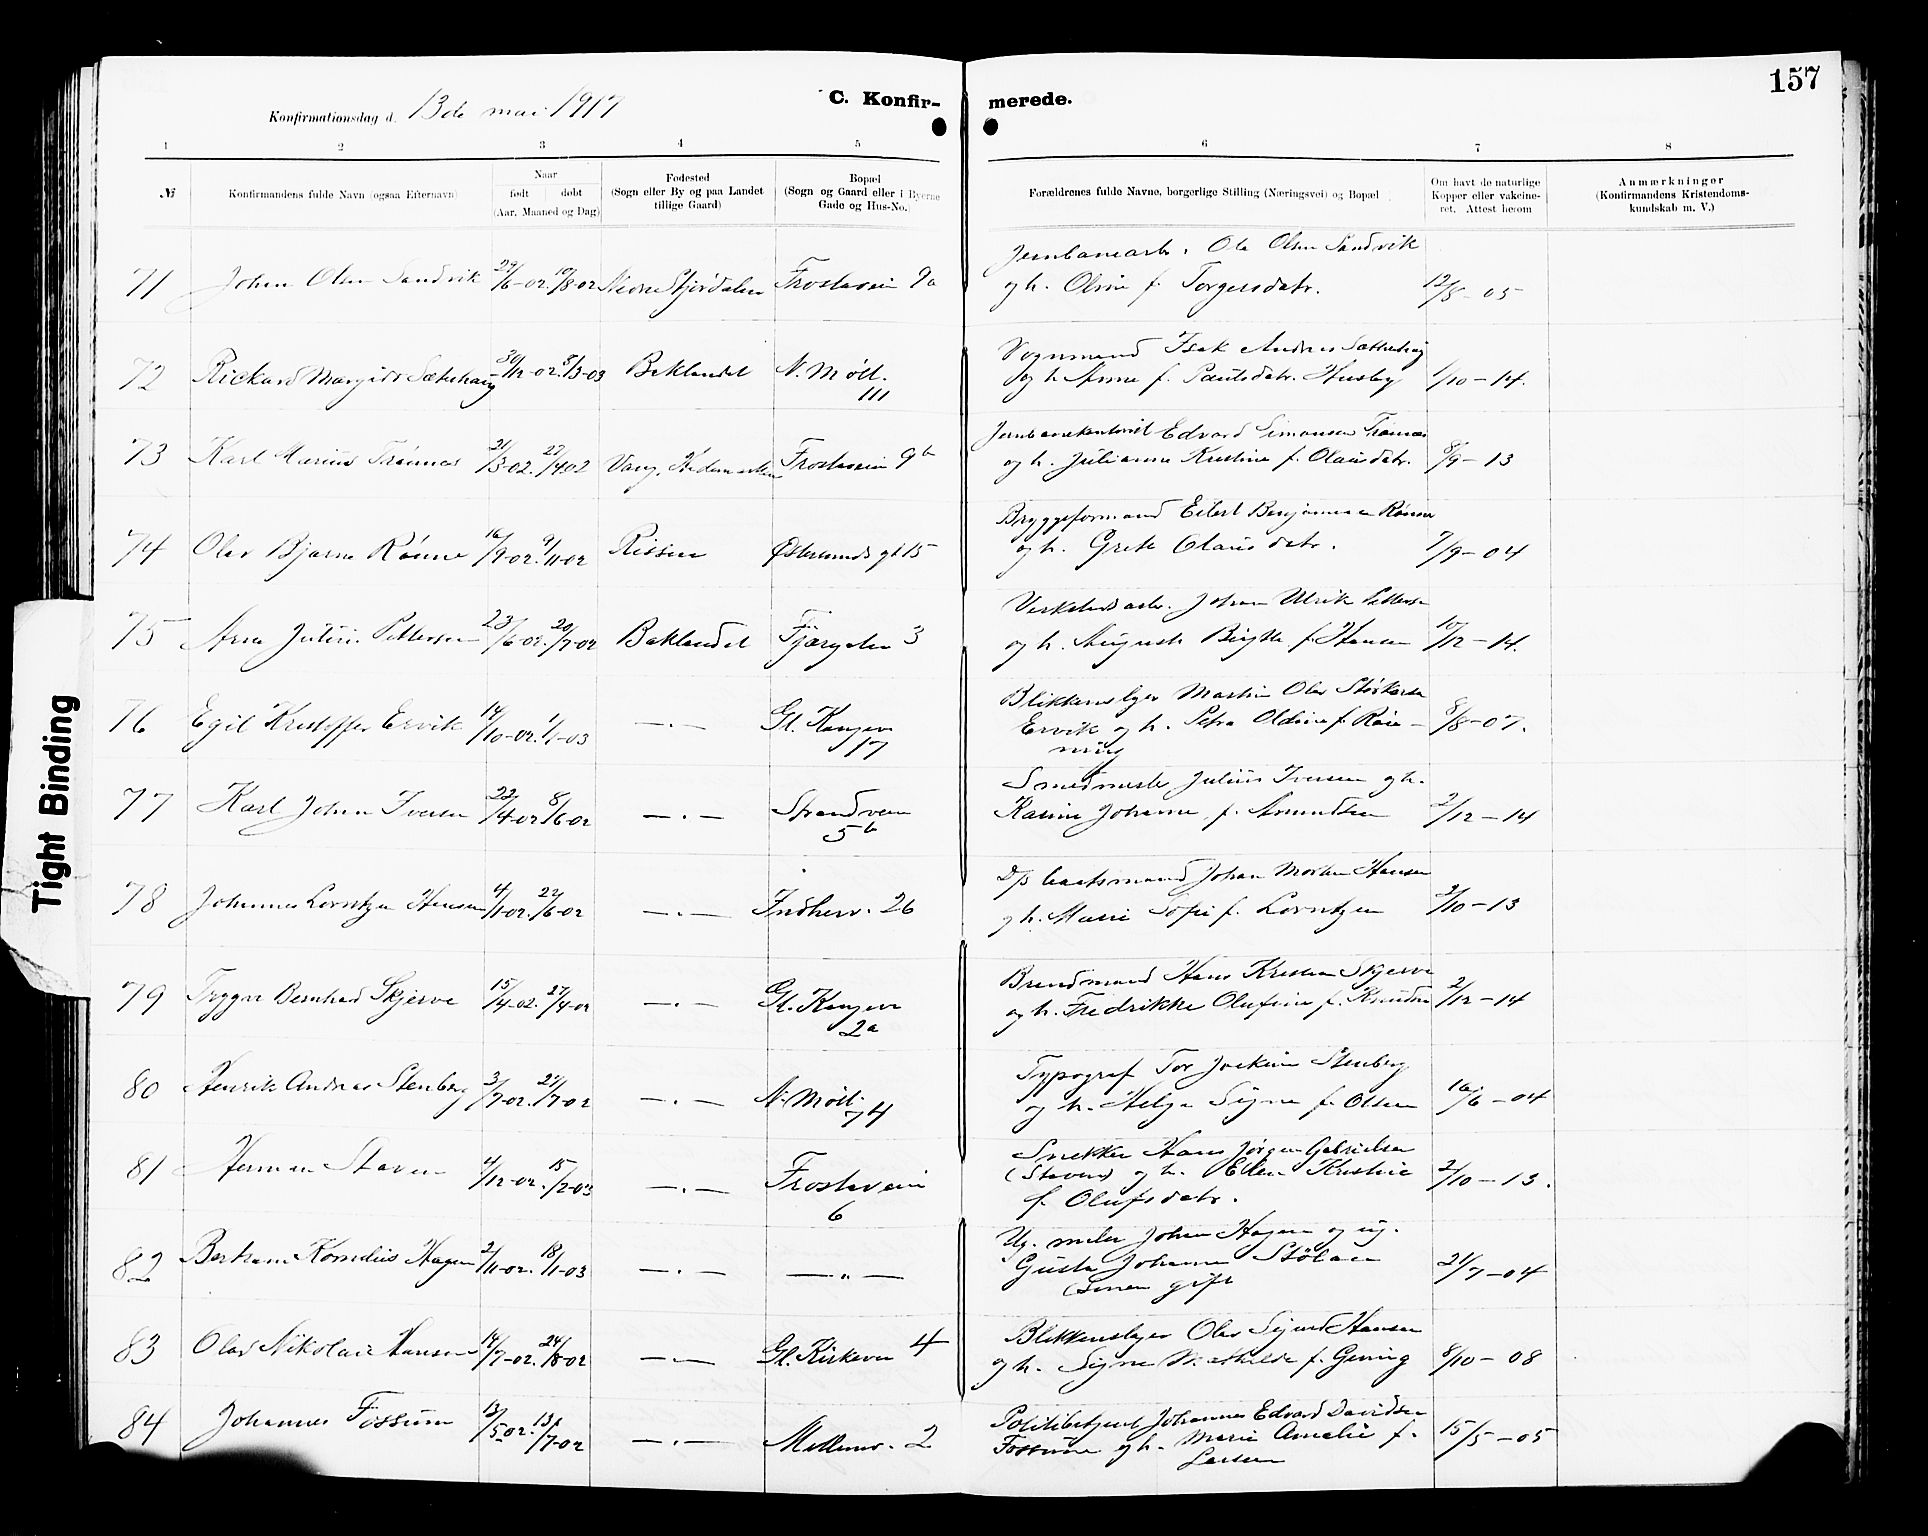 157
C. Konfir- merede.
Konfirmationsdag d. 13de mai 1917
1 2 3 4 5 6 7 8
№
Konfirmandens fulde Navn (ogsaa Efternavn)
Naar
født døbt
(Aar, Maaned og Dag)
Fødested
(Sogn eller By og paa Landet
tillige Gaard)
Bopæl
(Sogn og Gaard eller i Byerne
Gade og Hus-No.)
Forældrenes fulde Navne, borgerlige Stilling (Næringsvei) og Bopæl
Om havt de naturlige
Kopper eller vakcine-
ret. Attest herom
Anmærkninger
(Konfirmandens Kristendoms-
kundskab m. V.)
Jernbanearb. Ole Olsen Sandvik
71 Johan Olsen Sandvik 29/6-02. 10/8-02 Nedre Stjørdalen Frostaveien 9a og h. Oline f. Torgersdatr. 12/8-05
Vognmand Isak Andreas Sætherhaug
72 Rickard Margido Sæterhaug 30/12-02. 8/3-03 Baklandet N. Møll. og h. Anna f. Paulsdatr. Husby 1/10-14.
111
Jernbanekontorist Edvard Simonsen Trønnes
73 Karl Marius Trønnes 21/3-02. 27/4 02 Vang, Hedemarken Frostaveien 9b og h. Julianne Kristine f. Olausdatr. 8/9-13
Bryggeformand Eilert Benjaminsen Rønne
74 Olav Bjarne Rønne 16/9-02. 9/11-02 Rissen Østersunds gt 15 og h. Grete Olausdatr. 7/9-04
Verkstedsarb. Johan Ulrik Pettersen
75 Arne Julius Pettersen 23/6-02. 20/7-02 Baklandet Fjærgaten 3 og h. Augusta Birgitte f. Hansen 10/12-14.
Blikkenslager Martin Olav Størkersen
76 Egil Kristoffer Ervik 14/10-02. 1/1-03 —.— Gl. Kongev. Ervik og h. Petra Oldine f. Røn- 8/8-07.
17 ning
Smedmester Julius Iversen og h.
77 Karl Johan Iversen 22/4-02 8/6-02 —.— Strandveien Karine Johanne f. Amundsen 2/12-14
5b
D/s baatsmand Johan Morten Hansen
78 Johannes Lorntzen Hansen 4/1-02. 22/6-02 —.— Indherv. 26 og h. Marie Sofie f. Lorntzen 2/10-13
Brandmand Hans Kristian Skjerve
79 Trygve Bernhard Skjerve 15/4-02. 27/4-02 —.— Gl. Kongev. og h. Fredrikke Olufine f. Knudsen 2/12-14
2a
Typograf Tor Joakim Stenberg
80 Henrik Andreas Stenberg 3/7-02. 27/7-02 —.— N. Møll. og h. Helga Signe f. Olsen 16/6-04
74
Snekker Hans Jørgen Gabrielsen
81 Herman Staven 4/12-02. 15/2-03 —.— Frostaveien (Staven) og h. Ellen Kristine 2/10-13.
6 f. Olufsdatr.
Ug. maler Johan Hagen og ug.
82 Bertram Kornelius Hagen 2/11-02. 18/1-03 —.— —„— Gusta Johanne Stölan 21/7-04
(senere gift
Blikkenslager Olav Sigurd Hansen
83 Olav Nikolai Hansen 14/7-02. 24/8-02 —.— Gl. Kirkevei 4 og h. Signe Mathilde f. Gening 8/10-08
Politibetjent Johannes Edvard Davidsen
84 Johannes Fossum 13/5-02. 13/7-02 —.— Mellemv. 2 Fossum og h. Marie Amalie f. 15/5-05
Larsen
Tight Binding